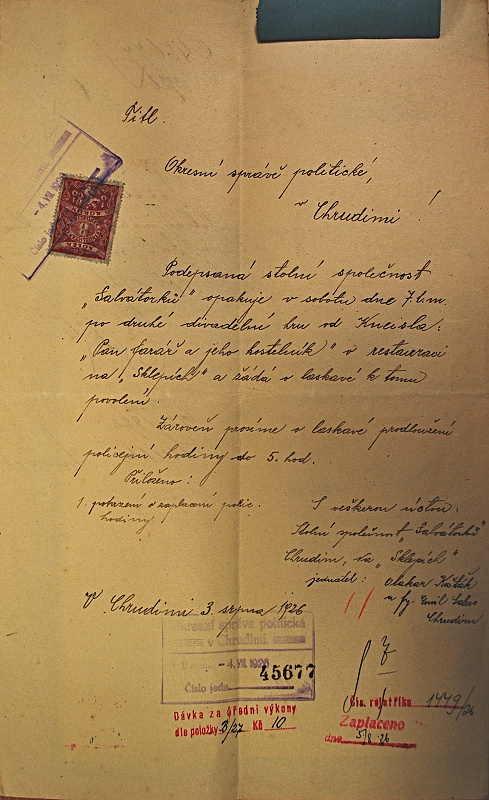 Titl.
Okresní správě politické,
v Chrudimi!
Podepsaná stolní společnost
„Salvátorků" opakuje v sobotu dne 7. t.m.
po druhé divadelní hru od Kneisla:
„Pan farář a jeho kostelník" v restauraci
na „Sklepích" a žádá o laskavé k tomu
povolení.
Zároveň prosíme o laskavé prodloužení
policejní hodiny do 5. hod.
Přiloženo:
1. potvrzení o zaplacení polic.
hodiny
S veškerou úctou:
Stolní společnost „Salvátorků"
Chrudim, na „Sklepích"
jednatel: Otakar
u fy. Emil
Chrudim
V Chrudimi 3. srpna 1926
Okresní správa politická
v Chrudimi.
- 4. VIII. 1926
Číslo jedn. 45677
Dávka za úřední výkony
dle položky 3/27 Kč 10
Čís. rejstříku 1479/26
Zaplaceno
dne 5/8 26